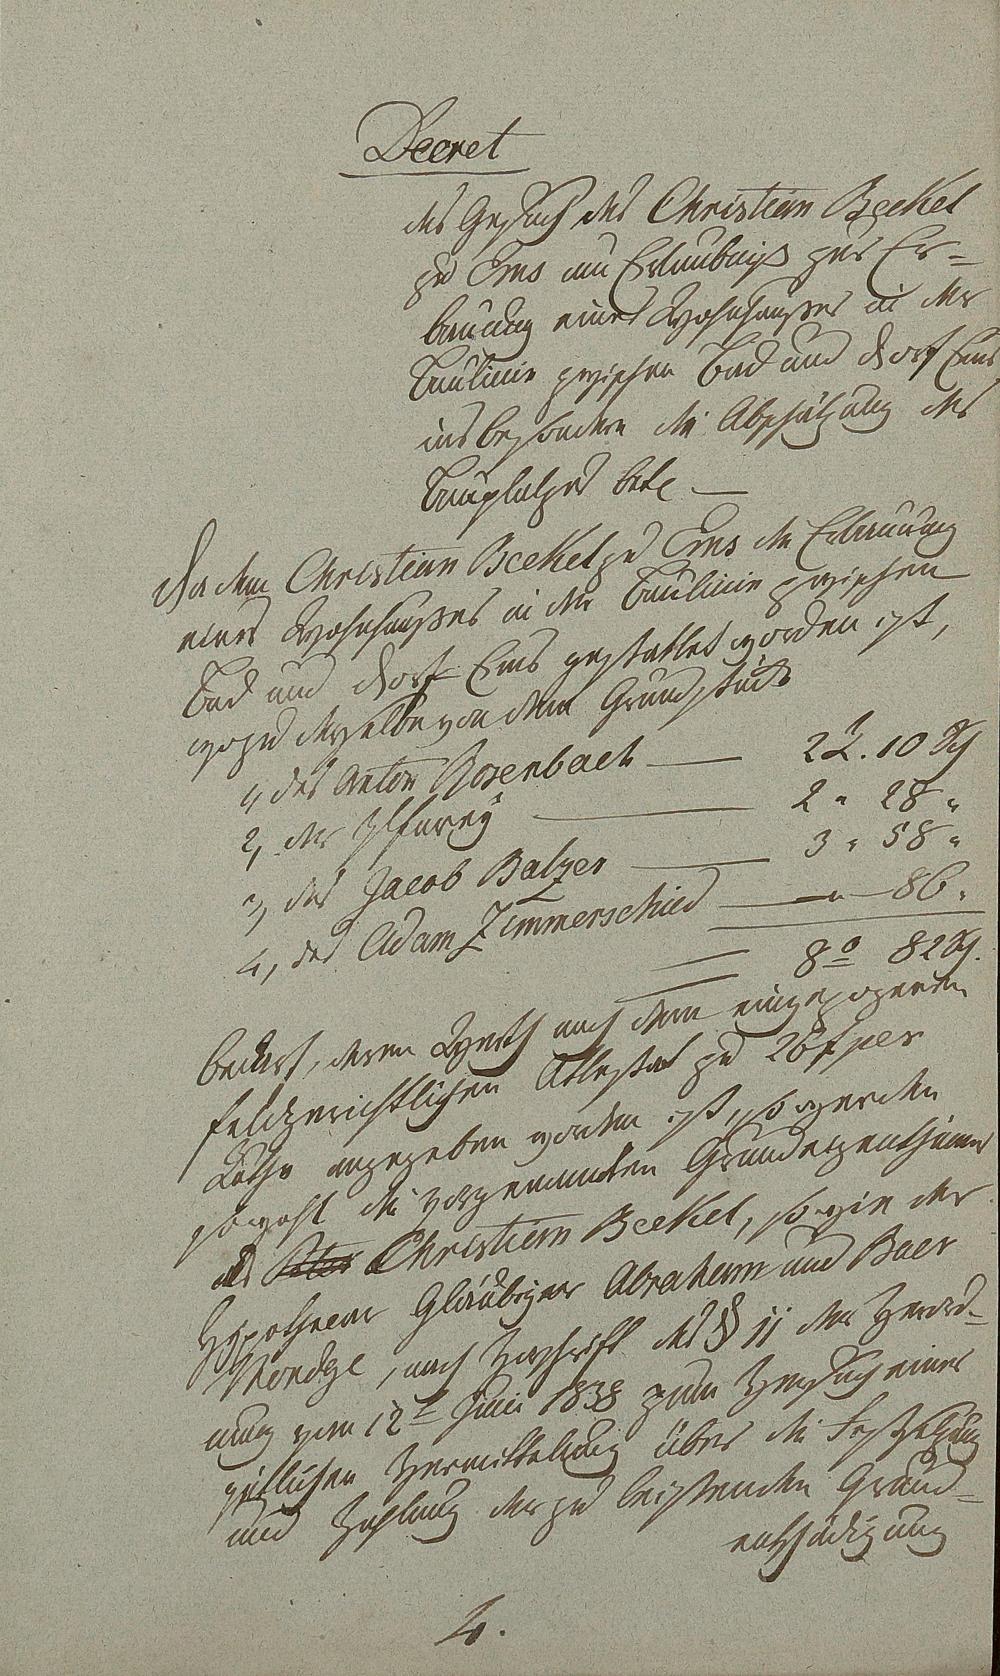 Decret
des Gesuch des Christian Beckel
zu Ems um Erlaubniß zur Er-
bauung eines Wohnhauses in der
Baulinie zwischen Bad und Dorf Ems
insbesondere die Abschätzung des
Bauplatzes betr.
Da dem Christian Beckel zu Ems die Erbauung
eines Wohnhauses in der Baulinie zwischen
Bad und Dorf Ems gestattet worden ist,
wozu derselbe von dem Grundstück
1, des Anton Rosenbach — 2 . 10
2, der Pfarrey — 2 " 28 "
3, des Jacob Balzer — 3 " 58 "
4, des Adam Zimmerschied — " — 86 "
8 82
bedarf, deren Werth nach dem eingezogenen
feldgerichtlichen Attestat zu 26 f per
Ruthe angegeben worden ist, so werden
sowohl die vorgenannten Grundeigenthümer
als Christian Beckel, sowie der
Hypothecar Gläubiger Abraham und Baer
nach Vorschrift des § 11 der Verord-
nung vom 12t Juni 1838 zum Versuch einer
gütlichen Vermittelung über die Festsetzung
und Zahlung der zu leistenden Grund-
entschädigung